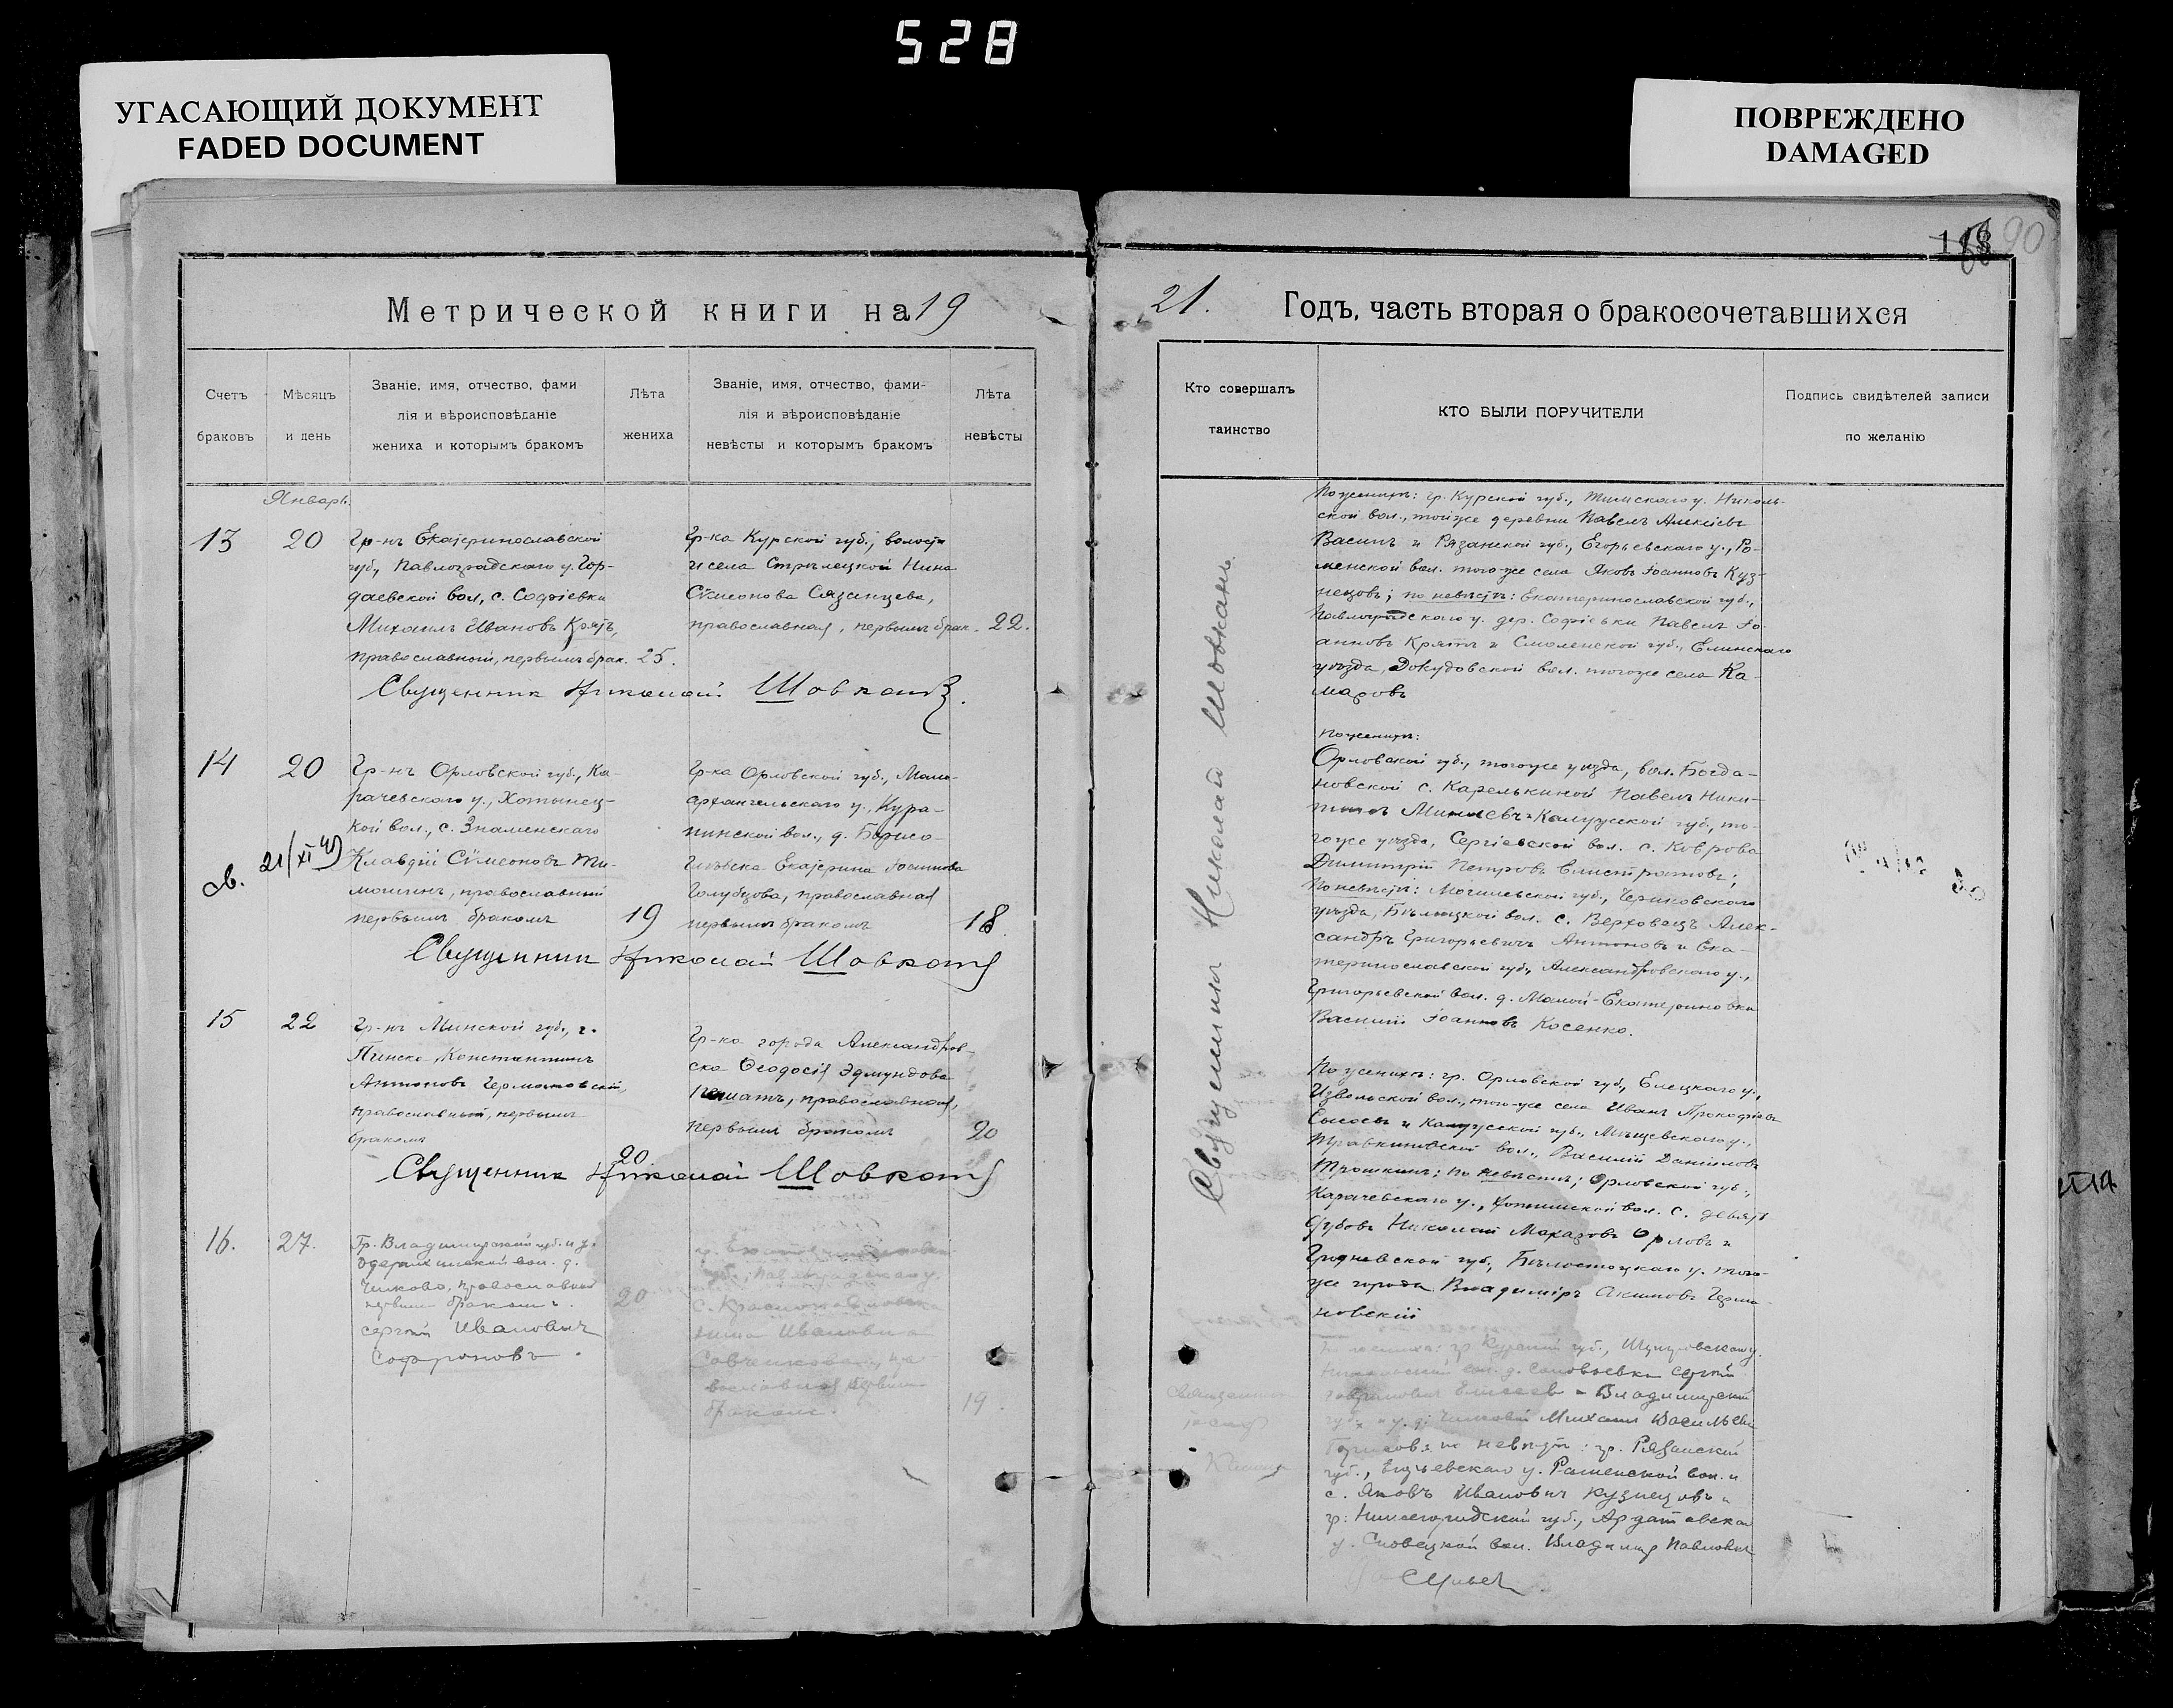 528
УГАСАЮЩИЙ ДОКУМЕНТ
FADED DOCUMENT
ПОВРЕЖДЕНО
DAMAGED
90
Метрической книги на 19
21. Годъ, часть вторая о бракосочетавшихся
Счетъ браковъ
Мѣсяцъ и день
Званіе, имя, отчество, фами
лія и вѣроисповѣданіе
жениха и которымъ бракомъ
Лѣта жениха
Званіе, имя, отчество, фами-
лія и вѣроисповѣданіе
невѣсты и которымъ бракомъ
Лѣта невѣсты
Кто совершалъ
таинство
КТО БЫЛИ ПОРУЧИТЕЛИ
Подпись свидѣтелей записи
по желанію
Январь
13
20
Гр-нъ Екатеринославской
губ., Павлоградскаго у. Гор-
даевской вол., с. Софіевки
Михаилъ Ивановъ Крятъ,
православный, первымъ брак. 25.
Гр-ка Курской губ., волости
и села Стрѣлецкой Нина
Сѵмеонова Сазанцева,
православная, первымъ брак. 22.
Священник Николай Шовкань
14
20
Гр-нъ Орловской губ., Ка-
рачевскаго у., Хотынец-
кой вол., с. Знаменскаго
Клавдій Сѵмеоновъ Ти-
мошинъ, православный
первымъ бракомъ 19
св. 21/XI 49
Гр-ка Орловской губ., Мало-
архангельскаго у., Кура-
кинской вол., д. Борисо-
Екатерина Іоаннова
Голубцова, православная
первымъ бракомъ 18
Священник Николай Шовкань
15
22
Гр-нъ Минской губ., г.
Пинска Константинъ
Антоновъ Чермановскій,
православный, первымъ
бракомъ
20
Гр-ка города Александров-
ска Ѳеодосія Эдмундова
православная,
первымъ бракомъ 20
Священник Николай Шовкань
16.
27.
Гр. Владимірской губ. и у.
вол. д.
Чиково, православный
первым браком. 20
Сергѣй Иванович
Софроновъ.
губ., Павлоградскаго у.
с.
Нина Ивановна
Савченкова, пра-
вославная первым
браком. 19.
Священник Николай Шовкань
По женихѣ: гр. Курской губ., Тимскаго у. Николь-
ской вол., тойже деревни Павелъ Алексіевъ
Васинъ и Рязанской губ., Егорьевскаго у., Ро-
менской вол. того-же села Яковъ Іоанновъ Куз-
нецовъ; по невѣстѣ: Екатеринославской губ.,
Павлоградскаго у. дер. Софіевки Павелъ Іо-
анновъ Крятъ и Смоленской губ., Елинскаго
уѣзда, Докудовской вол. тогоже села Ка-
маровъ
По женихѣ:
Орловской губ., тогоже уѣзда, вол. Богда-
новской с. Карелькиной Павелъ Ники-
Калужской губ., то-
гоже уѣзда, Сергіевской вол. с. Коврова
Димитрій Петровъ Елистратовъ;
По невѣстѣ: Могилевской губ., Чериковскаго
уѣзда, вол. с. Верховецъ Алек-
сандръ Григорьевичъ Антоновъ и Ека-
теринославской губ., Александровскаго у.,
Григорьевской вол. д. Малой-Екатериновки
Василій Іоанновъ Косенко.
По женихѣ: гр. Орловской губ., Елецкаго у.,
Извельской вол., того-же села Иванъ Прокофіевъ
и Калужской губ., Мещевскаго у.,
вол., Василій Даніиловъ
Трошкинъ; по невѣстѣ; Орловской губ.,
Карачевскаго у., вол. с. девять
Дубовъ Николай Макаровъ Орловъ и
Гродневской губ., Бѣлостоцкаго у. того-
же города Владиміръ Акимовъ Черма-
новскій
гр. Курской губ., Щигровскаго у.
вол. д. Соловьевки Сергѣй
Елисеев и Владимірской
губ. и у. д. Чиковой Михаил Васильев
по невѣстѣ: гр. Рязанской
губ., Егорьевскаго у. Раменской вол. и
с. Яковъ Иванович Кузнецовъ и
гр. Нижегородской губ., Ардатовскаго
у. вол. Владимір Павлович
Священник